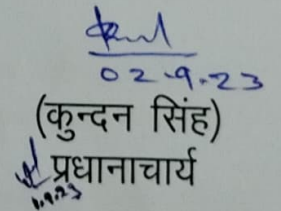 02.9.23
(कुन्दन सिंह)
प्रधानाचार्य
1.9.23